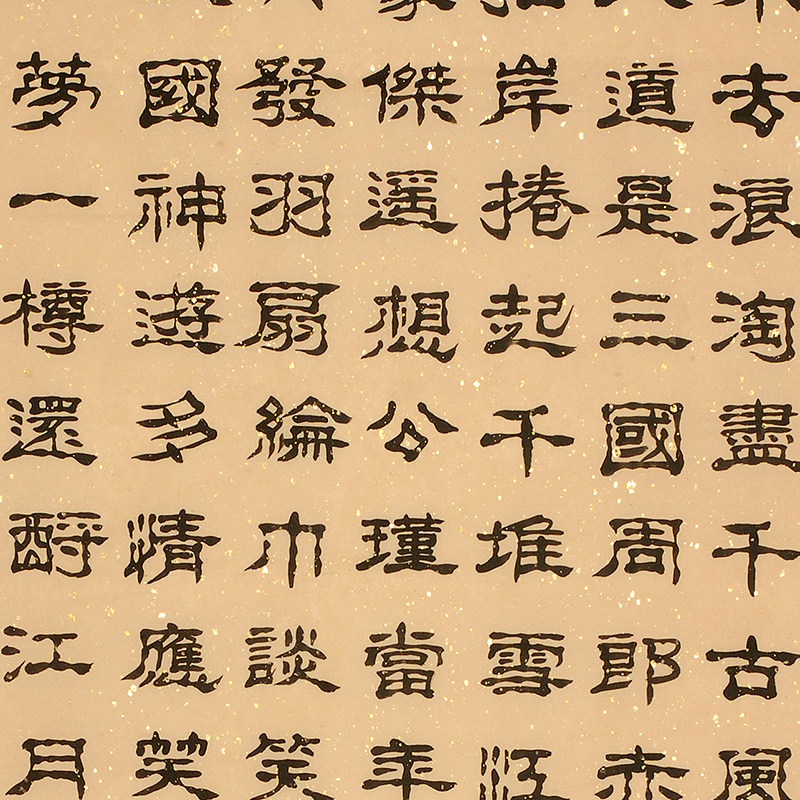 去浪淘盡千古風
道是三國周郎赤
岸捲起千堆雪江
傑遥想公瑾當年
發羽扇綸巾談笑
國神遊多情應笑
夢一樽還酹江月